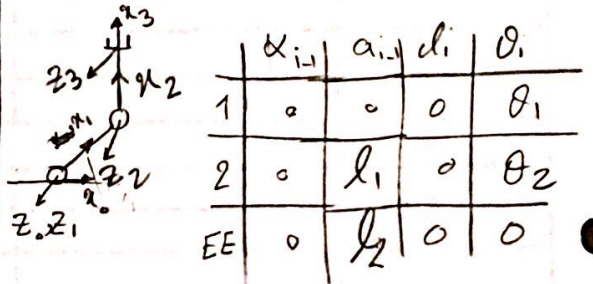 x3
z3
x2
x1
z2
x0
z0z1
αi-1 ai-1 di θi
1 0 0 0 θ1
2 0 l1 0 θ2
EE 0 l2 0 0